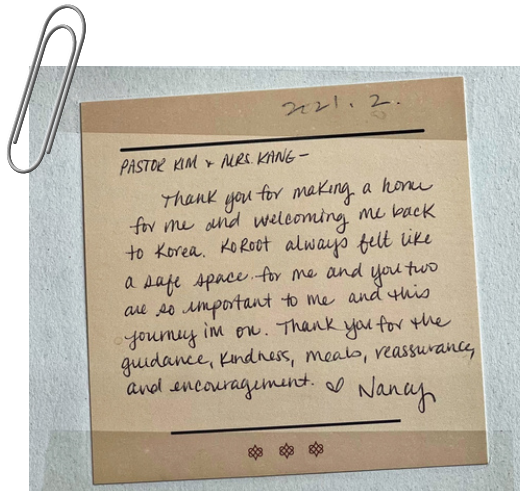 2021. 2.
PASTOR KIM & MRS. KANG-
Thank you for making a home
for me and welcoming me back
to Korea. KoRoot always felt like
a safe space for me and you two
are so important to me and this
journey im on. Thank you for the
guidance, kindness, meals, reassurance,
and encouragement. ♡ Nancy